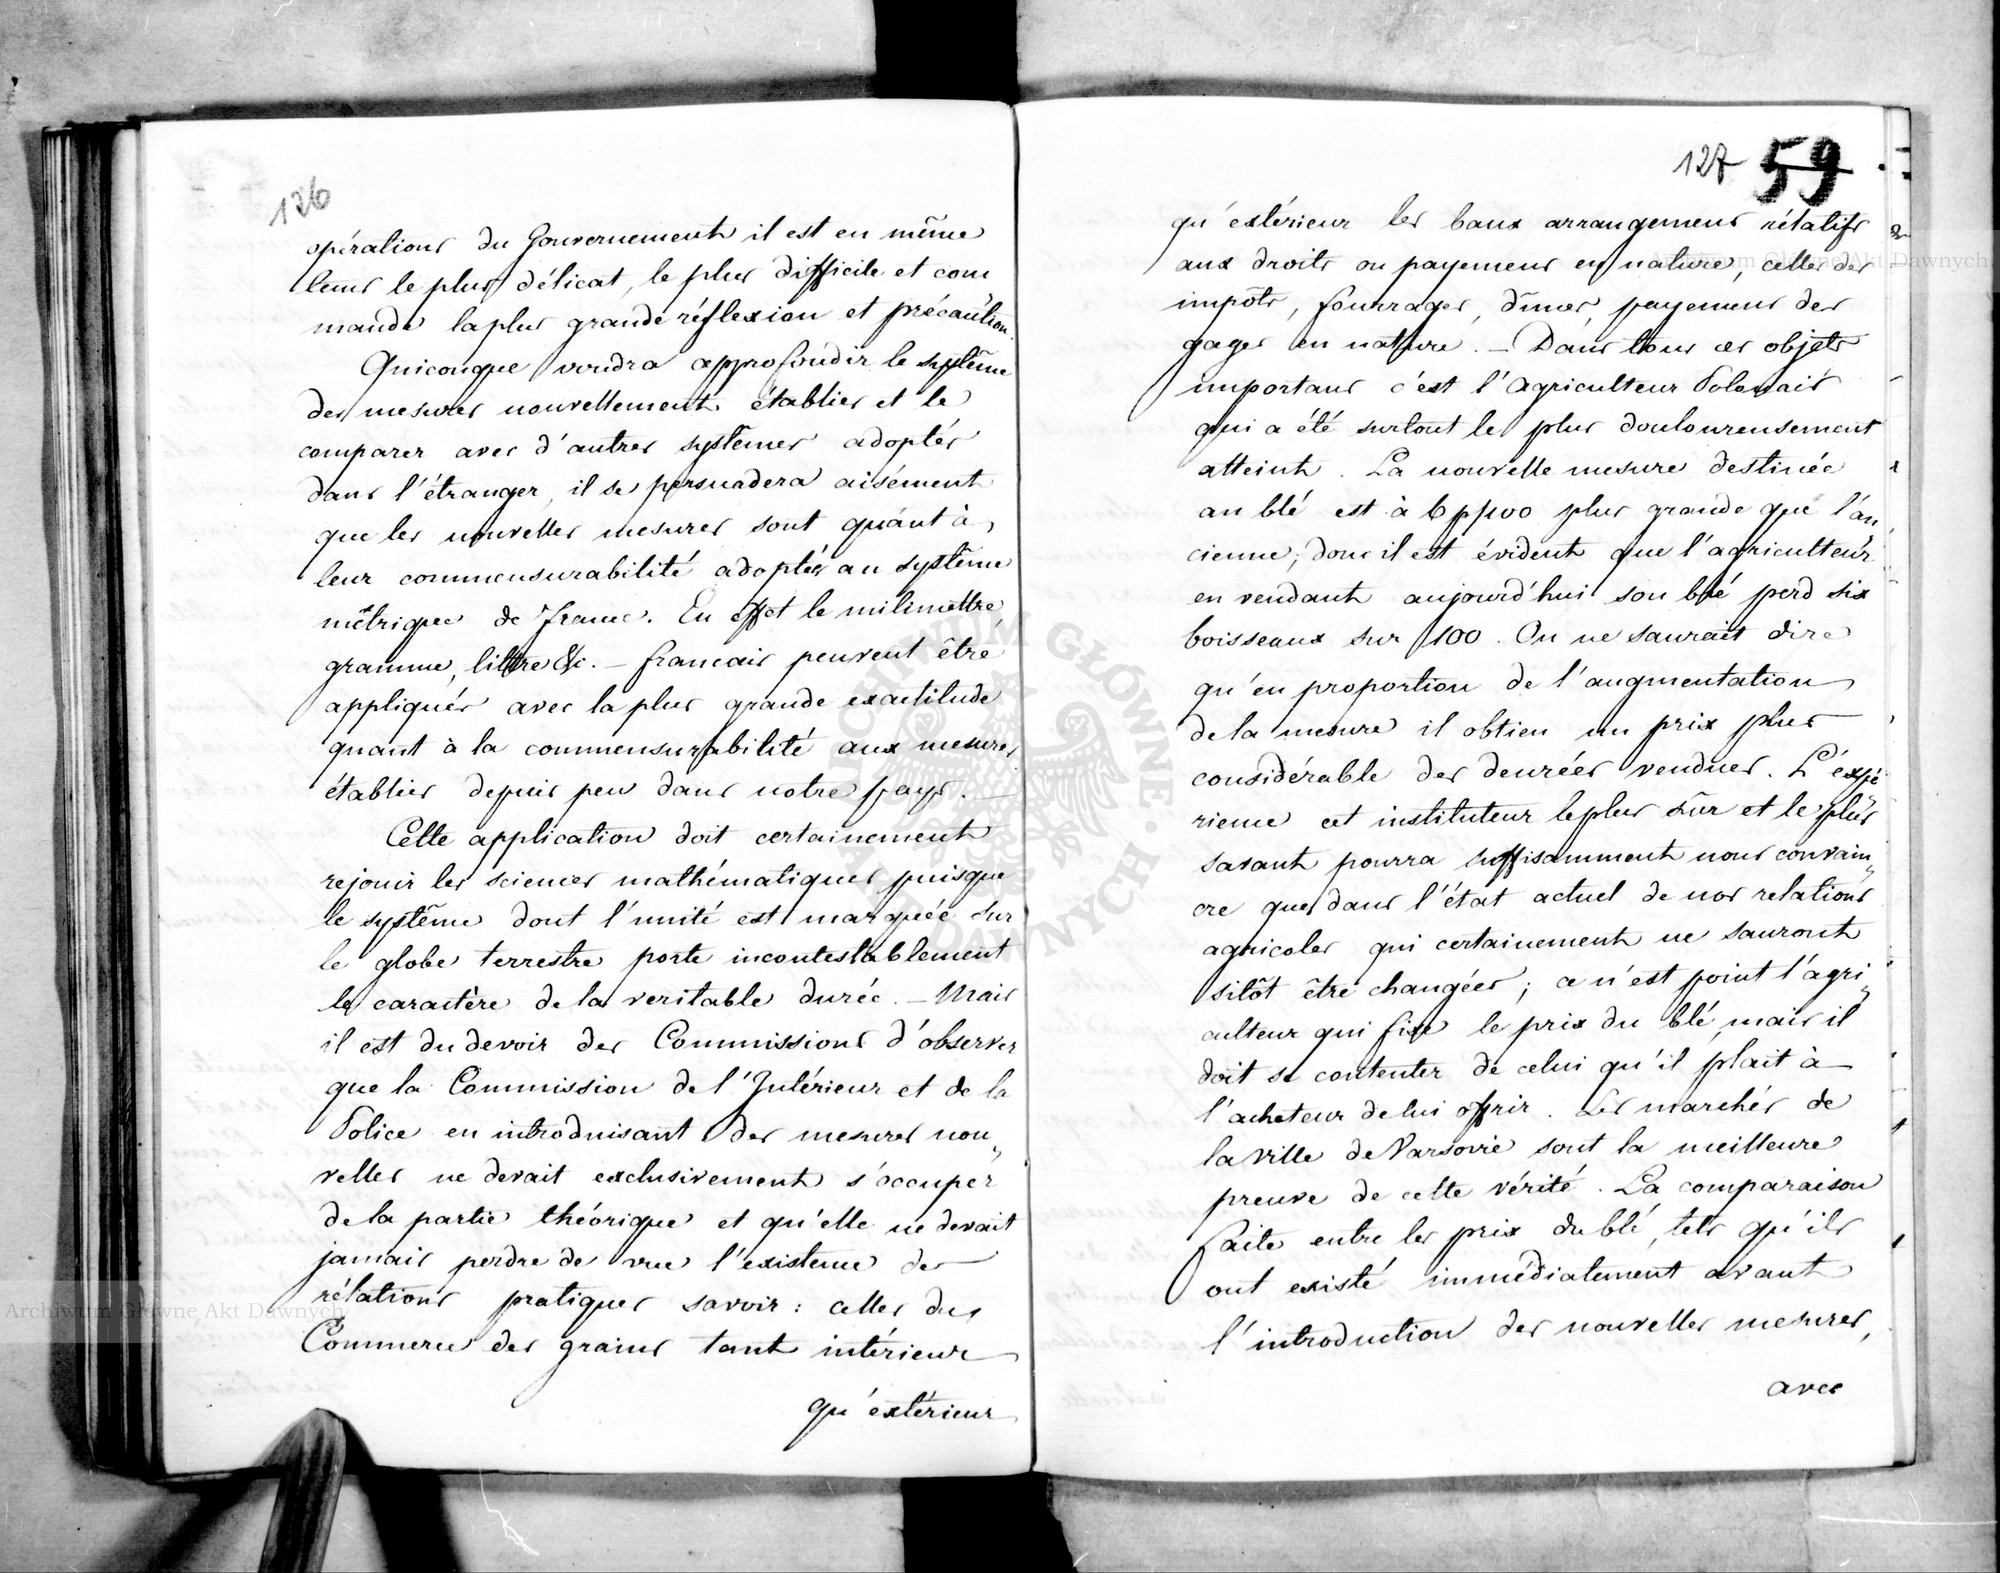 126
opérations du Gouvernement il est en même
tems le plus délicat, le plus difficile et com
mande la plus grande réflexion et précaution.
Quiconque voudra approfondir le système
des mesures nouvellement établies et le
comparer avec d'autres systèmes adoptés
dans l'étranger, il se persuadera aisément
que les nouvelles mesures sont quánt à
leur commensurabilité adoptées au système
métrique de France. En effet le milimettre
gramme, littre &c. – francais peuvent être
appliqués avec la plus grande exactitude
quant à la commensurabilité aux mesures
établies depuis peu dans notre pays. —
Cette application doit certainement
rejouir les sciences mathématiques puisque
le système dont l'unité est marquée sur
le globe terrestre porte incontestablement
le caractère de la veritable durée. – Mais
il est du devoir des Commissions d'observer
que la Commission de l'Intérieur et de la
Police en introduisant des mesures nou„
velles ne devait exclusivement s'occuper
de la partie théorique et qu'elle ne devait
jamais perdre de vue l'existence des
rélations pratiques savoir: celles du
Commerce des grains tant intérieur
qu'extérieur
127 59
qu'extérieur les baux arrangemens rélatifs
aux droits ou payemens en nature, celles des
impôts, fourrages, dîmes, payemens des
gages en nature. – Dans tous ces objets
importans c'est l'Agriculteur Polonais
qui a été surtout le plus douloureusement
atteint. La nouvelle mesure destinée
au blé est à 6 p%00 plus grande que l'an„
cienne, donc il est évident que l'agriculteur
en vendant aujourd'hui son blé perd six
boisseaux sur 100. On ne saurait dire
qu'en proportion de l'augmentation
de la mesure il obtien un prix plus
considérable des denrées vendues. L'expé„
rience cet instituteur le plus sûr et le plus
savant pourra suffisamment nous convain„
cre que dans l'état actuel de nos relations
agricoles qui certainement ne sauront
sitôt être changées; ce n'est point l'agri„
culteur qui fixe le prix du blé, mais il
doit se contenter de celui qu'il plait à
l'acheteur de lui offrir. Les marchés de
la ville de Varsovie sont la meilleure
preuve de cette vérité. La comparaison
faite entre les prix du blé, tels qu'ils
ont existé immédiatement avant
l'introduction des nouvelles mesures,
avec
ARCHIWUM GŁÓWNE AKT DAWNYCH
Archiwum Główne Akt Dawnych
Archiwum Główne Akt Dawnych